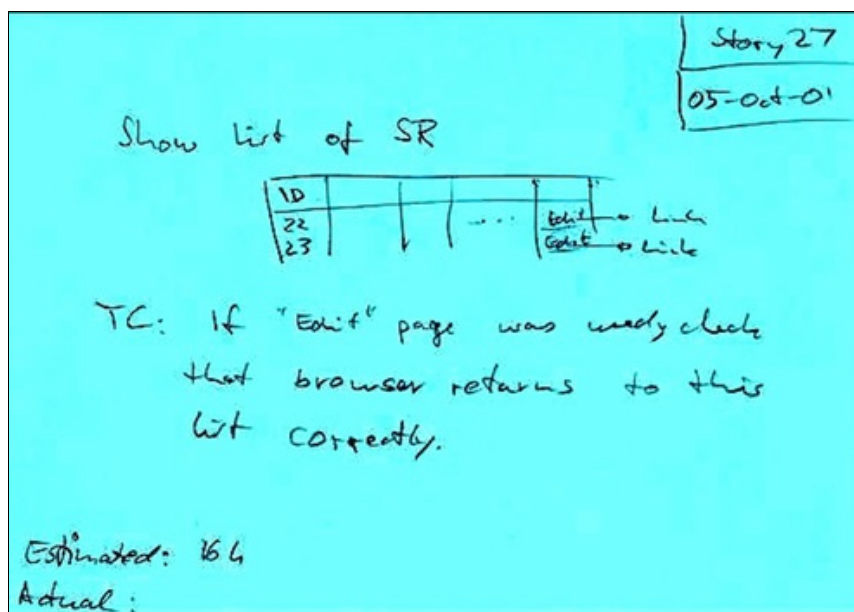 Story 27
05-Oct-01
Show list of SR
ID
22 .... Edit → Link
23 Edit → Link
TC: If "Edit" page was used, check
that browser returns to this
list correctly.
Estimated: 16 h
Actual: